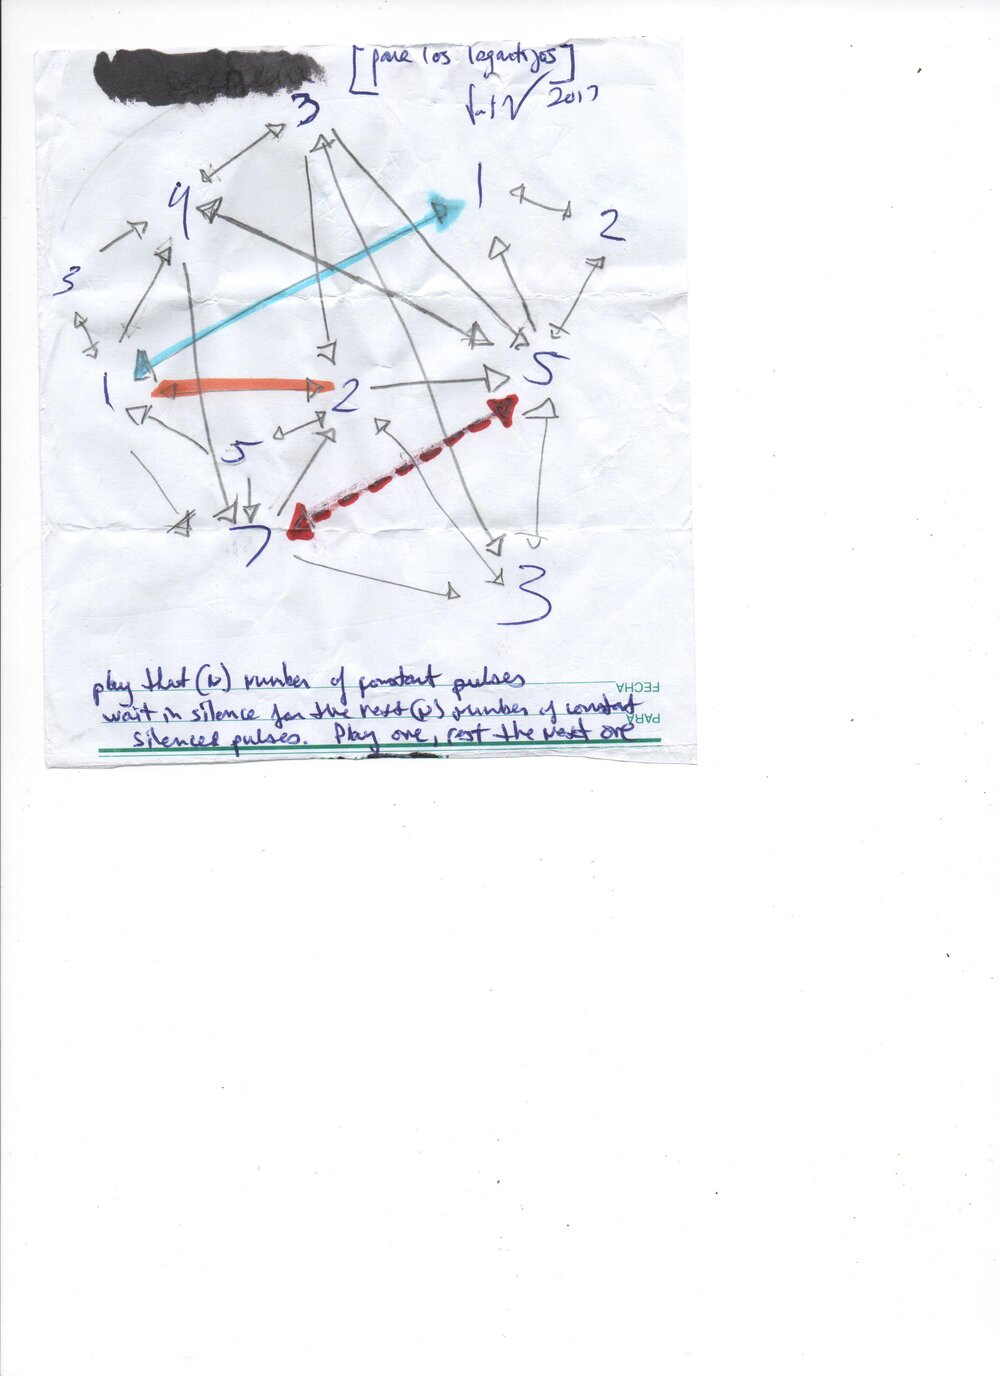 [para los lagartijos]
2017
3
4
1
2
3
1
2
5
5
7
3
play that (N) number of constant pulses
FECHA
wait in silence for the next (N) number of constant
PARA
silenced pulses. Play one, rest the next one